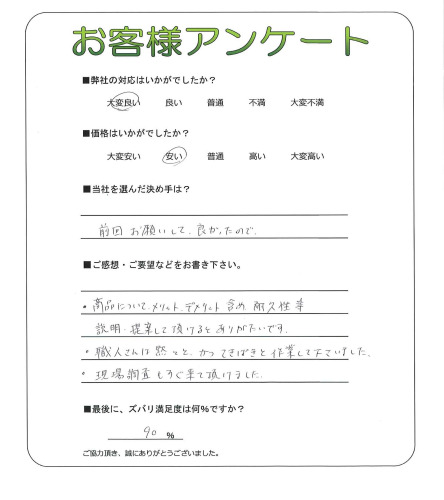 お客様アンケート
■弊社の対応はいかがでしたか？
大変良い 良い 普通 不満 大変不満
■価格はいかがでしたか？
大変安い 安い 普通 高い 大変高い
■当社を選んだ決め手は？
前回お願いして、良かったので、
■ご感想・ご要望などをお書き下さい。
・商品について、メリット、デメリット含め、耐久性等
説明・提案して頂けるとありがたいです。
・職人さんは黙々と、かつてきぱきと作業して下さいました。
・現場調査もすぐ来て頂けました。
■最後に、ズバリ満足度は何%ですか？
90 %
ご協力頂き、誠にありがとうございました。